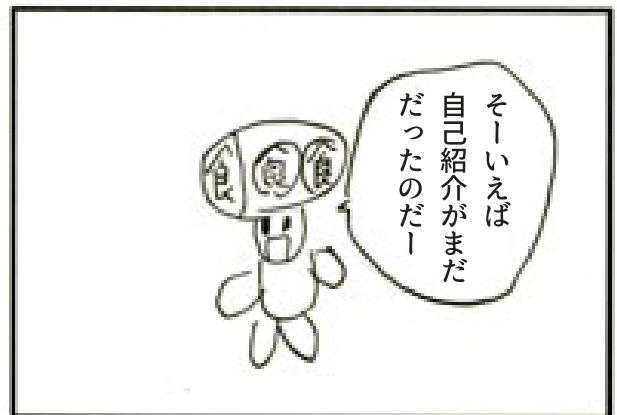 そーいえば
自己紹介がまだ
だったのだー
食
食
食